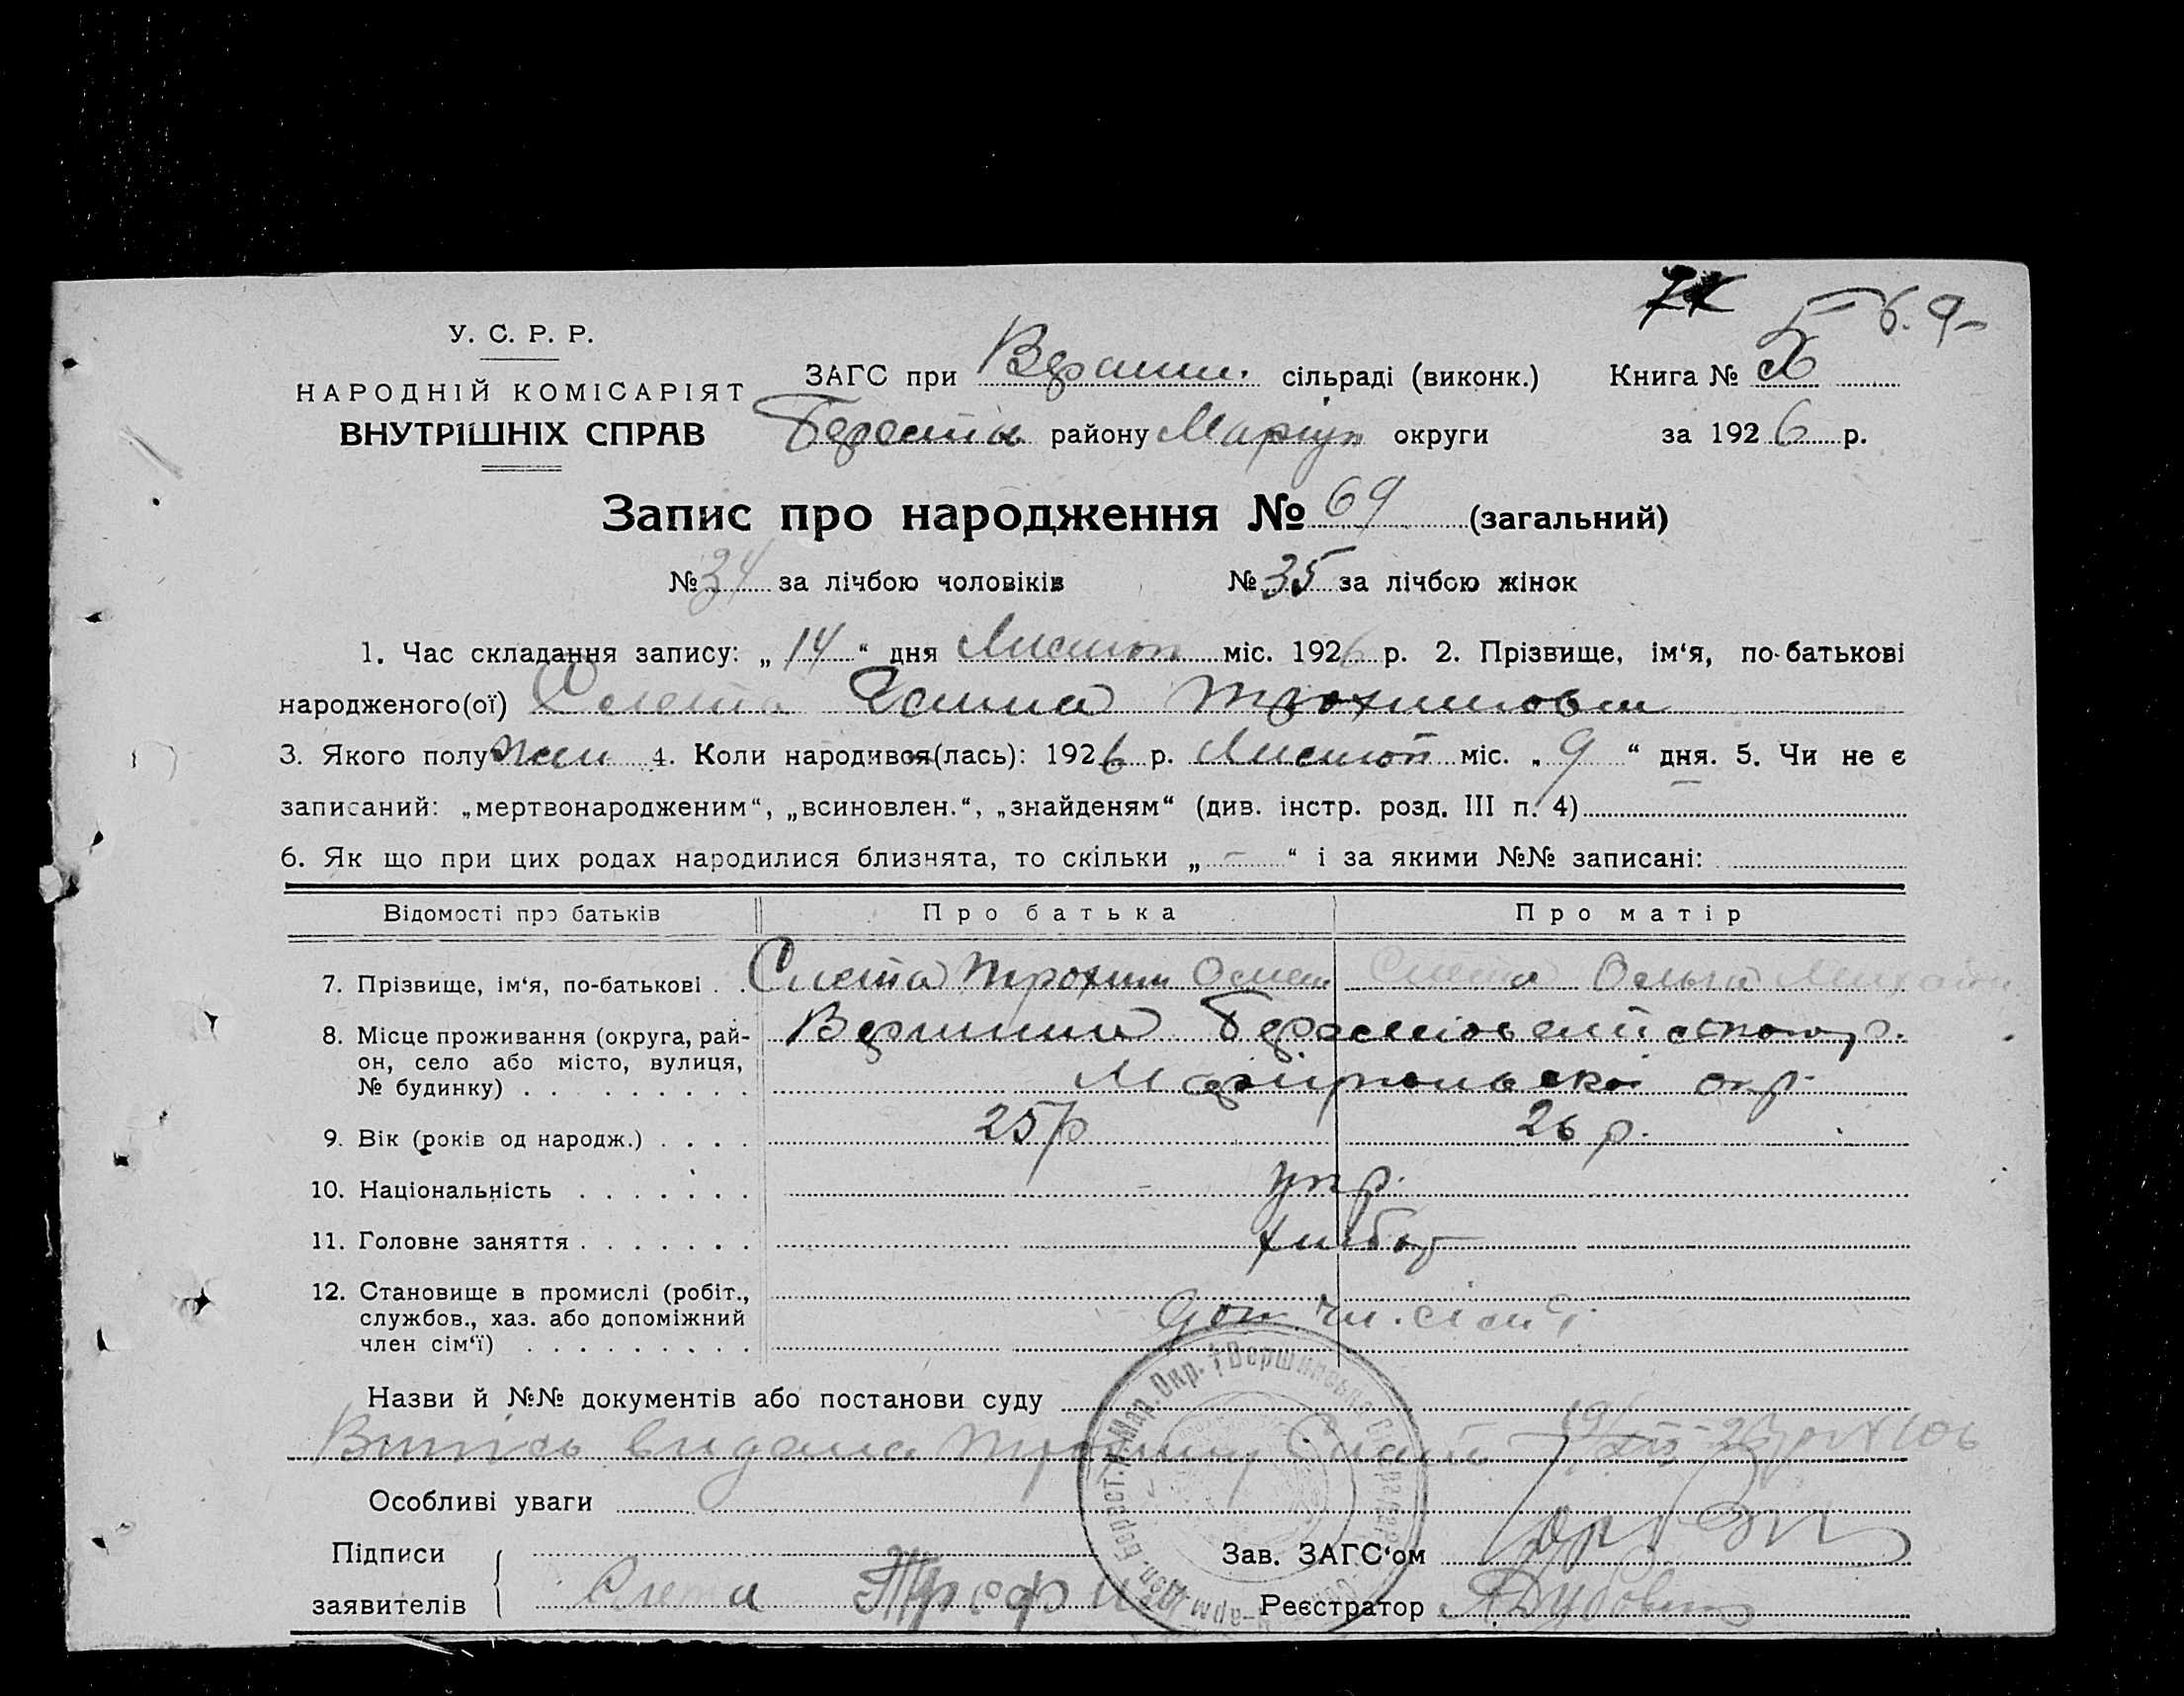 У. С. Р. Р.
НАРОДНІЙ КОМІСАРІЯТ
ВНУТРІШНІХ СПРАВ
ЗАГС при Вершин. сільраді (виконк.) Книга №
района Маріуп округи за 1926 р.
Запис про народження № 69 (загальний)
№ 34 за лічбою чоловіків № 35 за лічбою жінок
1. Час складання запису: „14“ дня Листоп міс. 1926 р. 2. Прізвище, ім‘я, по-батькові
народженого(ої) Слета Трохимовна
3. Якого полу жін 4. Коли народився(лась): 1926 р. Листоп міс. „9“ дня. 5. Чи не є
записаний: „мертвонародженим“, „всиновлен.“, „знайденям“ (див. інстр. розд. III п. 4)
6. Як що при цих родах народилися близнята, то скільки „-“ і за якими №№ записані:
Відомості про батьків Про батька Про матір
7. Прізвище, ім‘я, по-батькові . . Слета Трохим Слета Ольга
8. Місце проживання (округа, рай-
он, село або місто, вулиця,
№ будинку) . . . . . . . . .
Вершина
Маріупольскої окр.
9. Вік (років од народж.) . . . . 25 р 26 р.
10. Національність . . . . . . . укр.
11. Головне заняття . . . . . . . хлібор
12. Становище в промислі (робіт.,
службов., хаз. або допоміжний
член сім‘ї) . . . . . . . . .
доп. чл. сім'ї
Назви й №№ документів або постанови суду
видана N 106
Особливі уваги
Підписи
заявителів
Слета Трофим
Зав. ЗАГС‘ом
Реєстратор